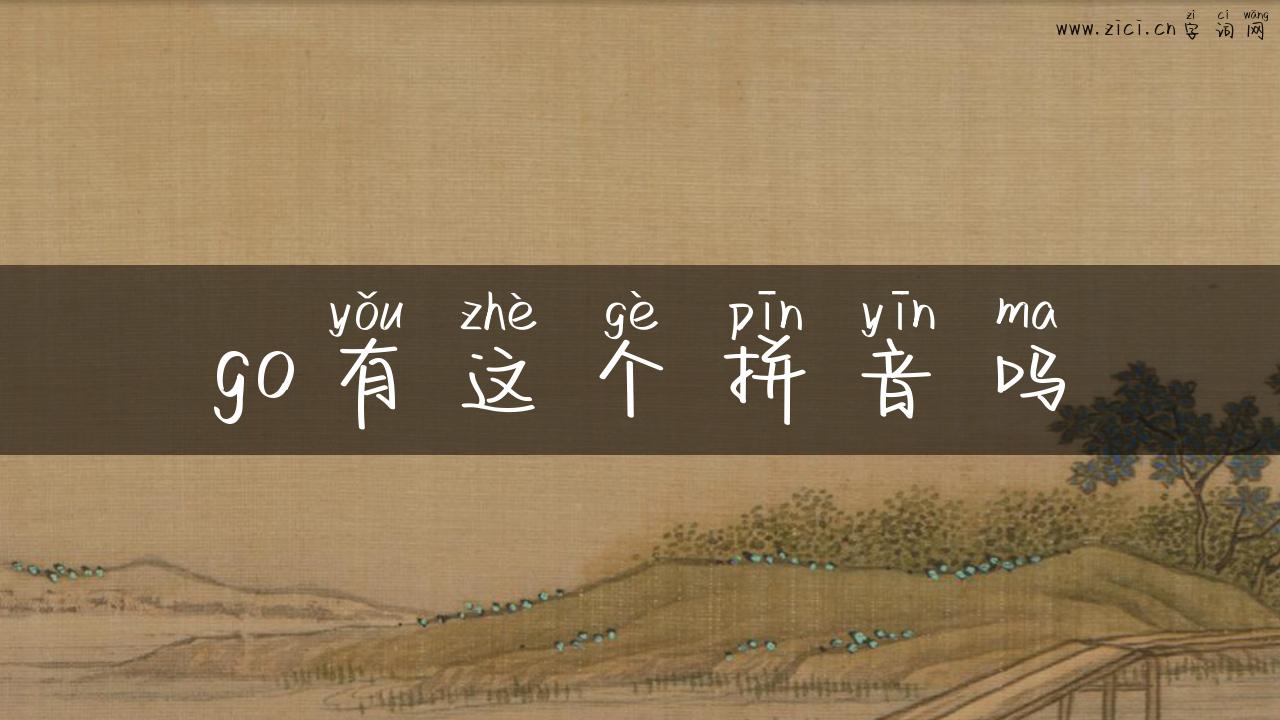 zì cí wǎng
www.zici.cn 字词网
yǒu zhè gè pīn yīn ma
go 有这个拼音吗